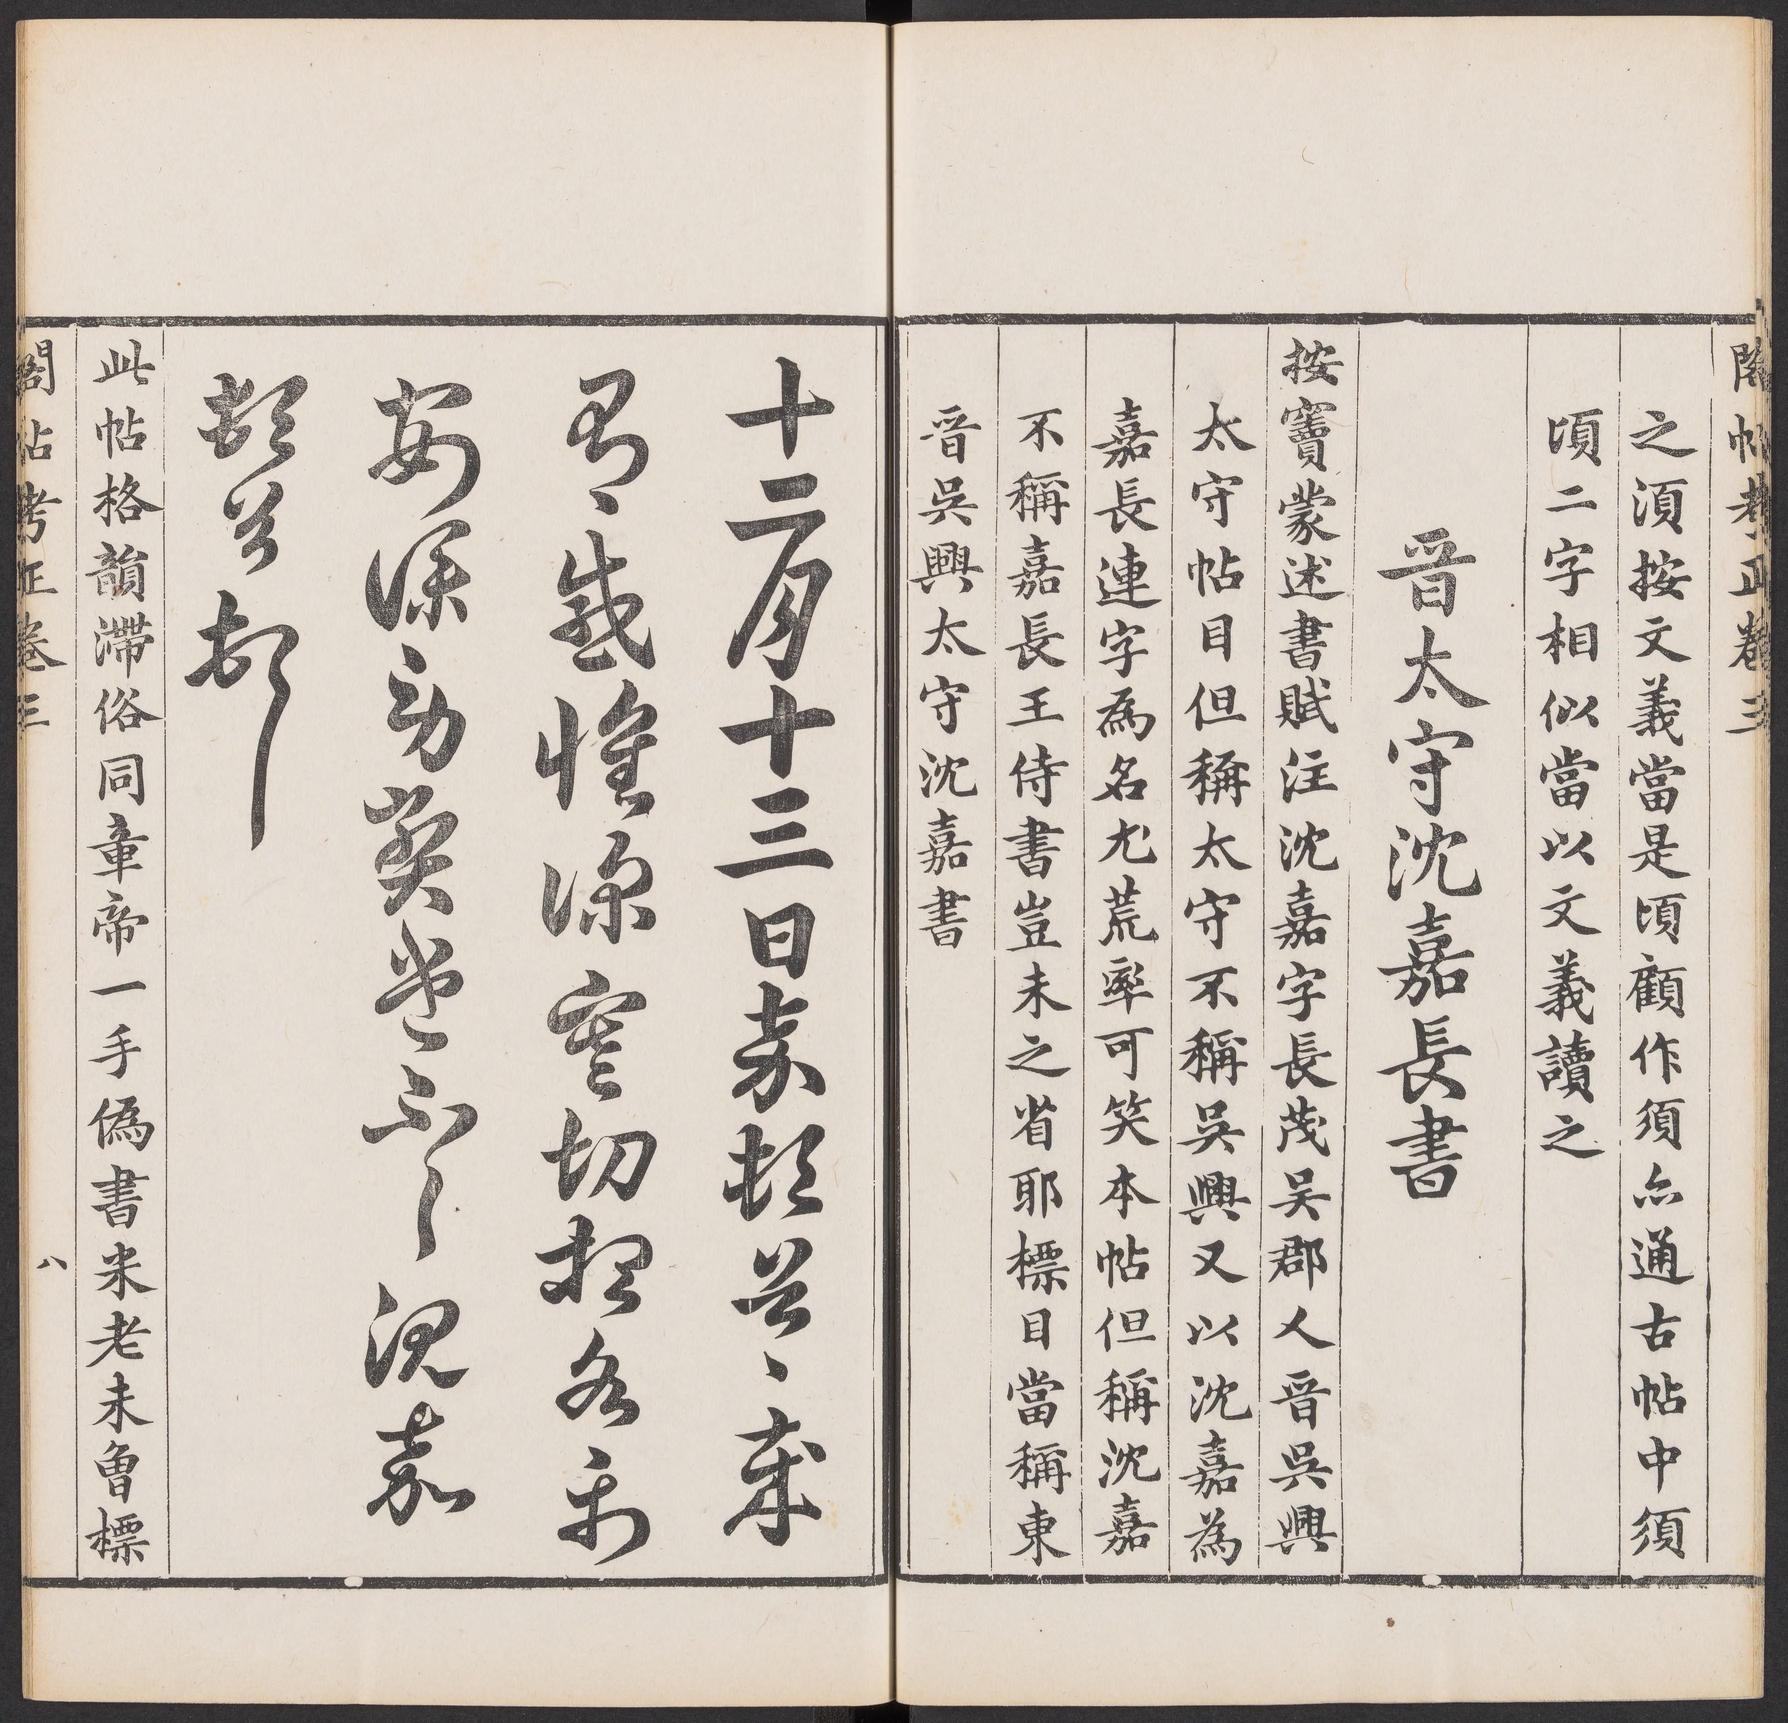 閣帖考正卷三
之湏按文義當是頃顧作須亦通古帖中須
頃二字相似當以文義讀之
晉太守沈嘉長書
按竇蒙述書賦注沈嘉字長茂吴郡人晉吳興
太守帖目但稱太守不稱吳興又以沈嘉為
嘉長連字為名尤荒率可笑本帖但稱沈嘉
不稱嘉長王侍書豈未之省耶標目當稱東
晉吳興太守沈嘉書
十二月十三日嘉頓首〻歲
感惟深寒切想各
安深沈嘉
頓首頓
此帖格韻滯俗同章帝一手偽書米老未曾標
閣帖考正卷三
八